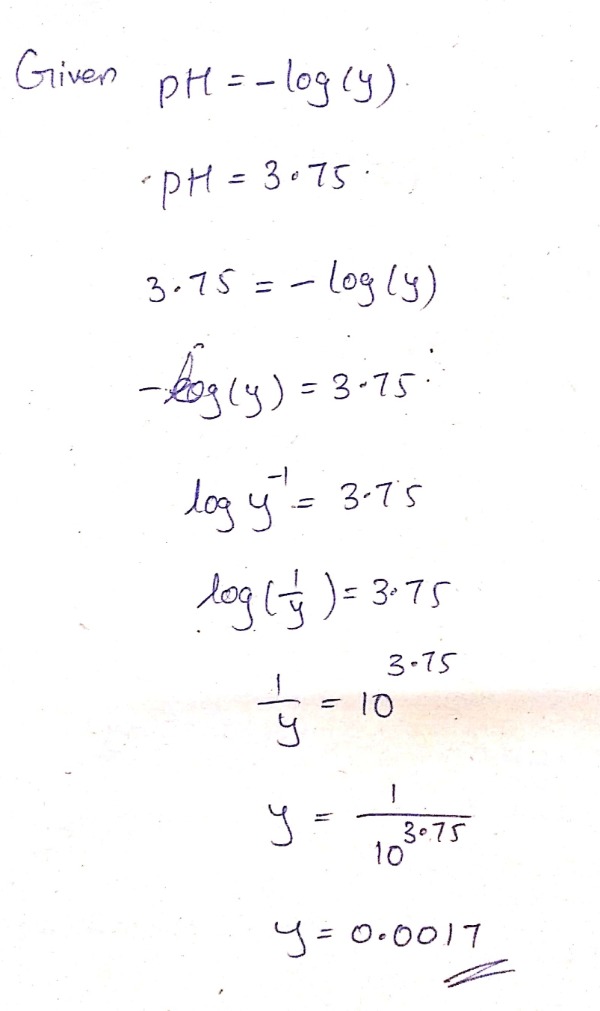 Given pH = - log (y).
pH = 3.75.
3.75 = - log (y)
- log (y) = 3.75.
log y⁻¹ = 3.75
log (1/y) = 3.75
1/y = 10^3.75
y = 1/10^3.75
y = 0.0017